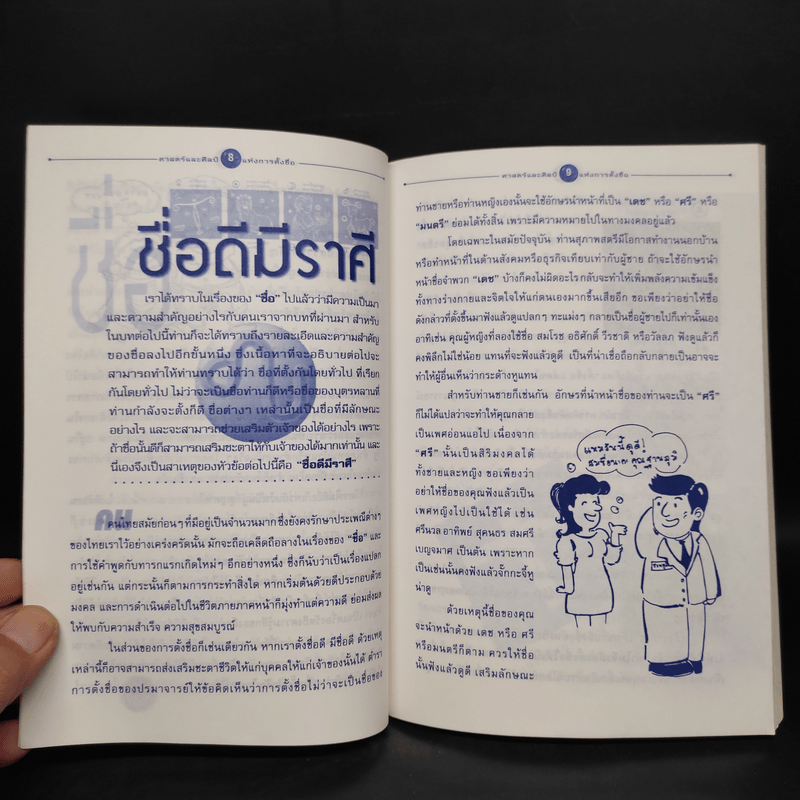 ศาสตร์และศิลป์ 8 แห่งการตั้งชื่อ
ชื่อดีมีราศี
เราได้ทราบในเรื่องของ "ชื่อ" ไปแล้วว่ามีความเป็นมา
และความสำคัญอย่างไรกับคนเราจากบทที่ผ่านมา สำหรับ
ในบทต่อไปนี้ท่านก็จะได้ทราบถึงรายละเอียดและความสำคัญ
ของชื่อลงไปอีกขั้นหนึ่ง ซึ่งเนื้อหาที่จะอธิบายต่อไปจะ
สามารถทำให้ท่านทราบได้ว่า ชื่อที่ตั้งกันโดยทั่วไป ที่เรียก
กันโดยทั่วไป ไม่ว่าจะเป็นชื่อท่านก็ดีหรือชื่อของบุตรหลานที่
ท่านกำลังจะตั้งก็ดี ชื่อต่างๆ เหล่านั้นเป็นชื่อที่มีลักษณะ
อย่างไร และจะสามารถช่วยเสริมตัวเจ้าของได้อย่างไร เพราะ
ถ้าชื่อนั้นดีก็สามารถเสริมชะตาให้กับเจ้าของได้มากเท่านั้น และ
นี่เองจึงเป็นสาเหตุของหัวข้อต่อไปนี้คือ "ชื่อดีมีราศี"
คนไทยสมัยก่อนๆ ที่มีอยู่เป็นจำนวนมาก ซึ่งยังคงรักษาประเพณีต่างๆ
ของไทยเราไว้อย่างเคร่งครัดนั้น มักจะถือเคล็ดถือลางในเรื่องของ "ชื่อ" และ
การใช้คำพูดกับทารกแรกเกิดใหม่ๆ อีกอย่างหนึ่ง ซึ่งก็นับว่าเป็นเรื่องแปลก
อยู่เช่นกัน แต่กระนั้นก็ตามการกระทำสิ่งใด หากเริ่มต้นด้วยดีประกอบด้วย
มงคล และการดำเนินต่อไปในชีวิตภายภาคหน้าก็มุ่งทำแต่ความดี ย่อมส่งผล
ให้พบกับความสำเร็จ ความสุขสมบูรณ์
ในส่วนของการตั้งชื่อก็เช่นเดียวกัน หากเราตั้งชื่อดี มีชื่อดี ด้วยเหตุ
เหล่านี้ก็อาจสามารถส่งเสริมชะตาชีวิตให้แก่บุคคลให้แก่เจ้าของนั้นได้ ตำรา
การตั้งชื่อของปรมาจารย์ให้ข้อคิดเห็นว่าการตั้งชื่อไม่ว่าจะเป็นชื่อของ
ศาสตร์และศิลป์ 9 แห่งการตั้งชื่อ
ท่านชายหรือท่านหญิงเองนั้นจะใช้อักษรนำหน้าที่เป็น "เดช" หรือ "ศรี" หรือ
"มนตรี" ย่อมได้ทั้งสิ้น เพราะมีความหมายไปในทางมงคลอยู่แล้ว
โดยเฉพาะในสมัยปัจจุบัน ท่านสุภาพสตรีมีโอกาสทำงานนอกบ้าน
หรือทำหน้าที่ในด้านสังคมหรือธุรกิจเทียบเท่ากับผู้ชาย ถ้าจะใช้อักษรนำ
หน้าชื่อจำพวก "เดช" บ้างก็คงไม่ผิดอะไรกลับจะทำให้เพิ่มพลังความเข้มแข็ง
ทั้งทางร่างกายและจิตใจให้แก่ตนเองมากขึ้นเสียอีก ขอเพียงว่าอย่าให้ชื่อ
ดังกล่าวที่ตั้งขึ้นมาฟังแล้วดูแปลกๆ ทะแม่งๆ กลายเป็นชื่อผู้ชายไปก็เท่านั้นเอง
อาทิเช่น คุณผู้หญิงที่ลองใช้ชื่อ สมโรช อธิศักดิ์ วีรชาติ หรือวัลลภ ฟังดูแล้วก็
คงพิลึกไม่ใช่น้อย แทนที่จะฟังแล้วดูดี เป็นที่น่าเชื่อถือกลับกลายเป็นอาจจะ
ทำให้ผู้อื่นเห็นว่ากระด้างหูแทน
สำหรับท่านชายก็เช่นกัน อักษรที่นำหน้าชื่อของท่านจะเป็น "ศรี"
ก็ไม่ได้แปลว่าจะทำให้คุณกลาย
เป็นเพศอ่อนแอไป เนื่องจาก
"ศรี" นั้นเป็นสิริมงคลได้
ทั้งชายและหญิง ขอเพียงว่า
อย่าให้ชื่อของคุณฟังแล้วเป็น
เพศหญิงไปเป็นใช้ได้ เช่น
ศรีนวล อาทิพย์ สุคนธร สมศรี
เบญจมาศ เป็นต้น เพราะหาก
เป็นเช่นนั้นคงฟังแล้วจั๊กกะจี้หู
น่าดู
ด้วยเหตุนี้ชื่อของคุณ
จะนำหน้าด้วย เดช หรือ ศรี
หรือมนตรีก็ตาม ควรให้ชื่อ
นั้นฟังแล้วดูดี เสริมลักษณะ
แหมวันนี้ดูดี!